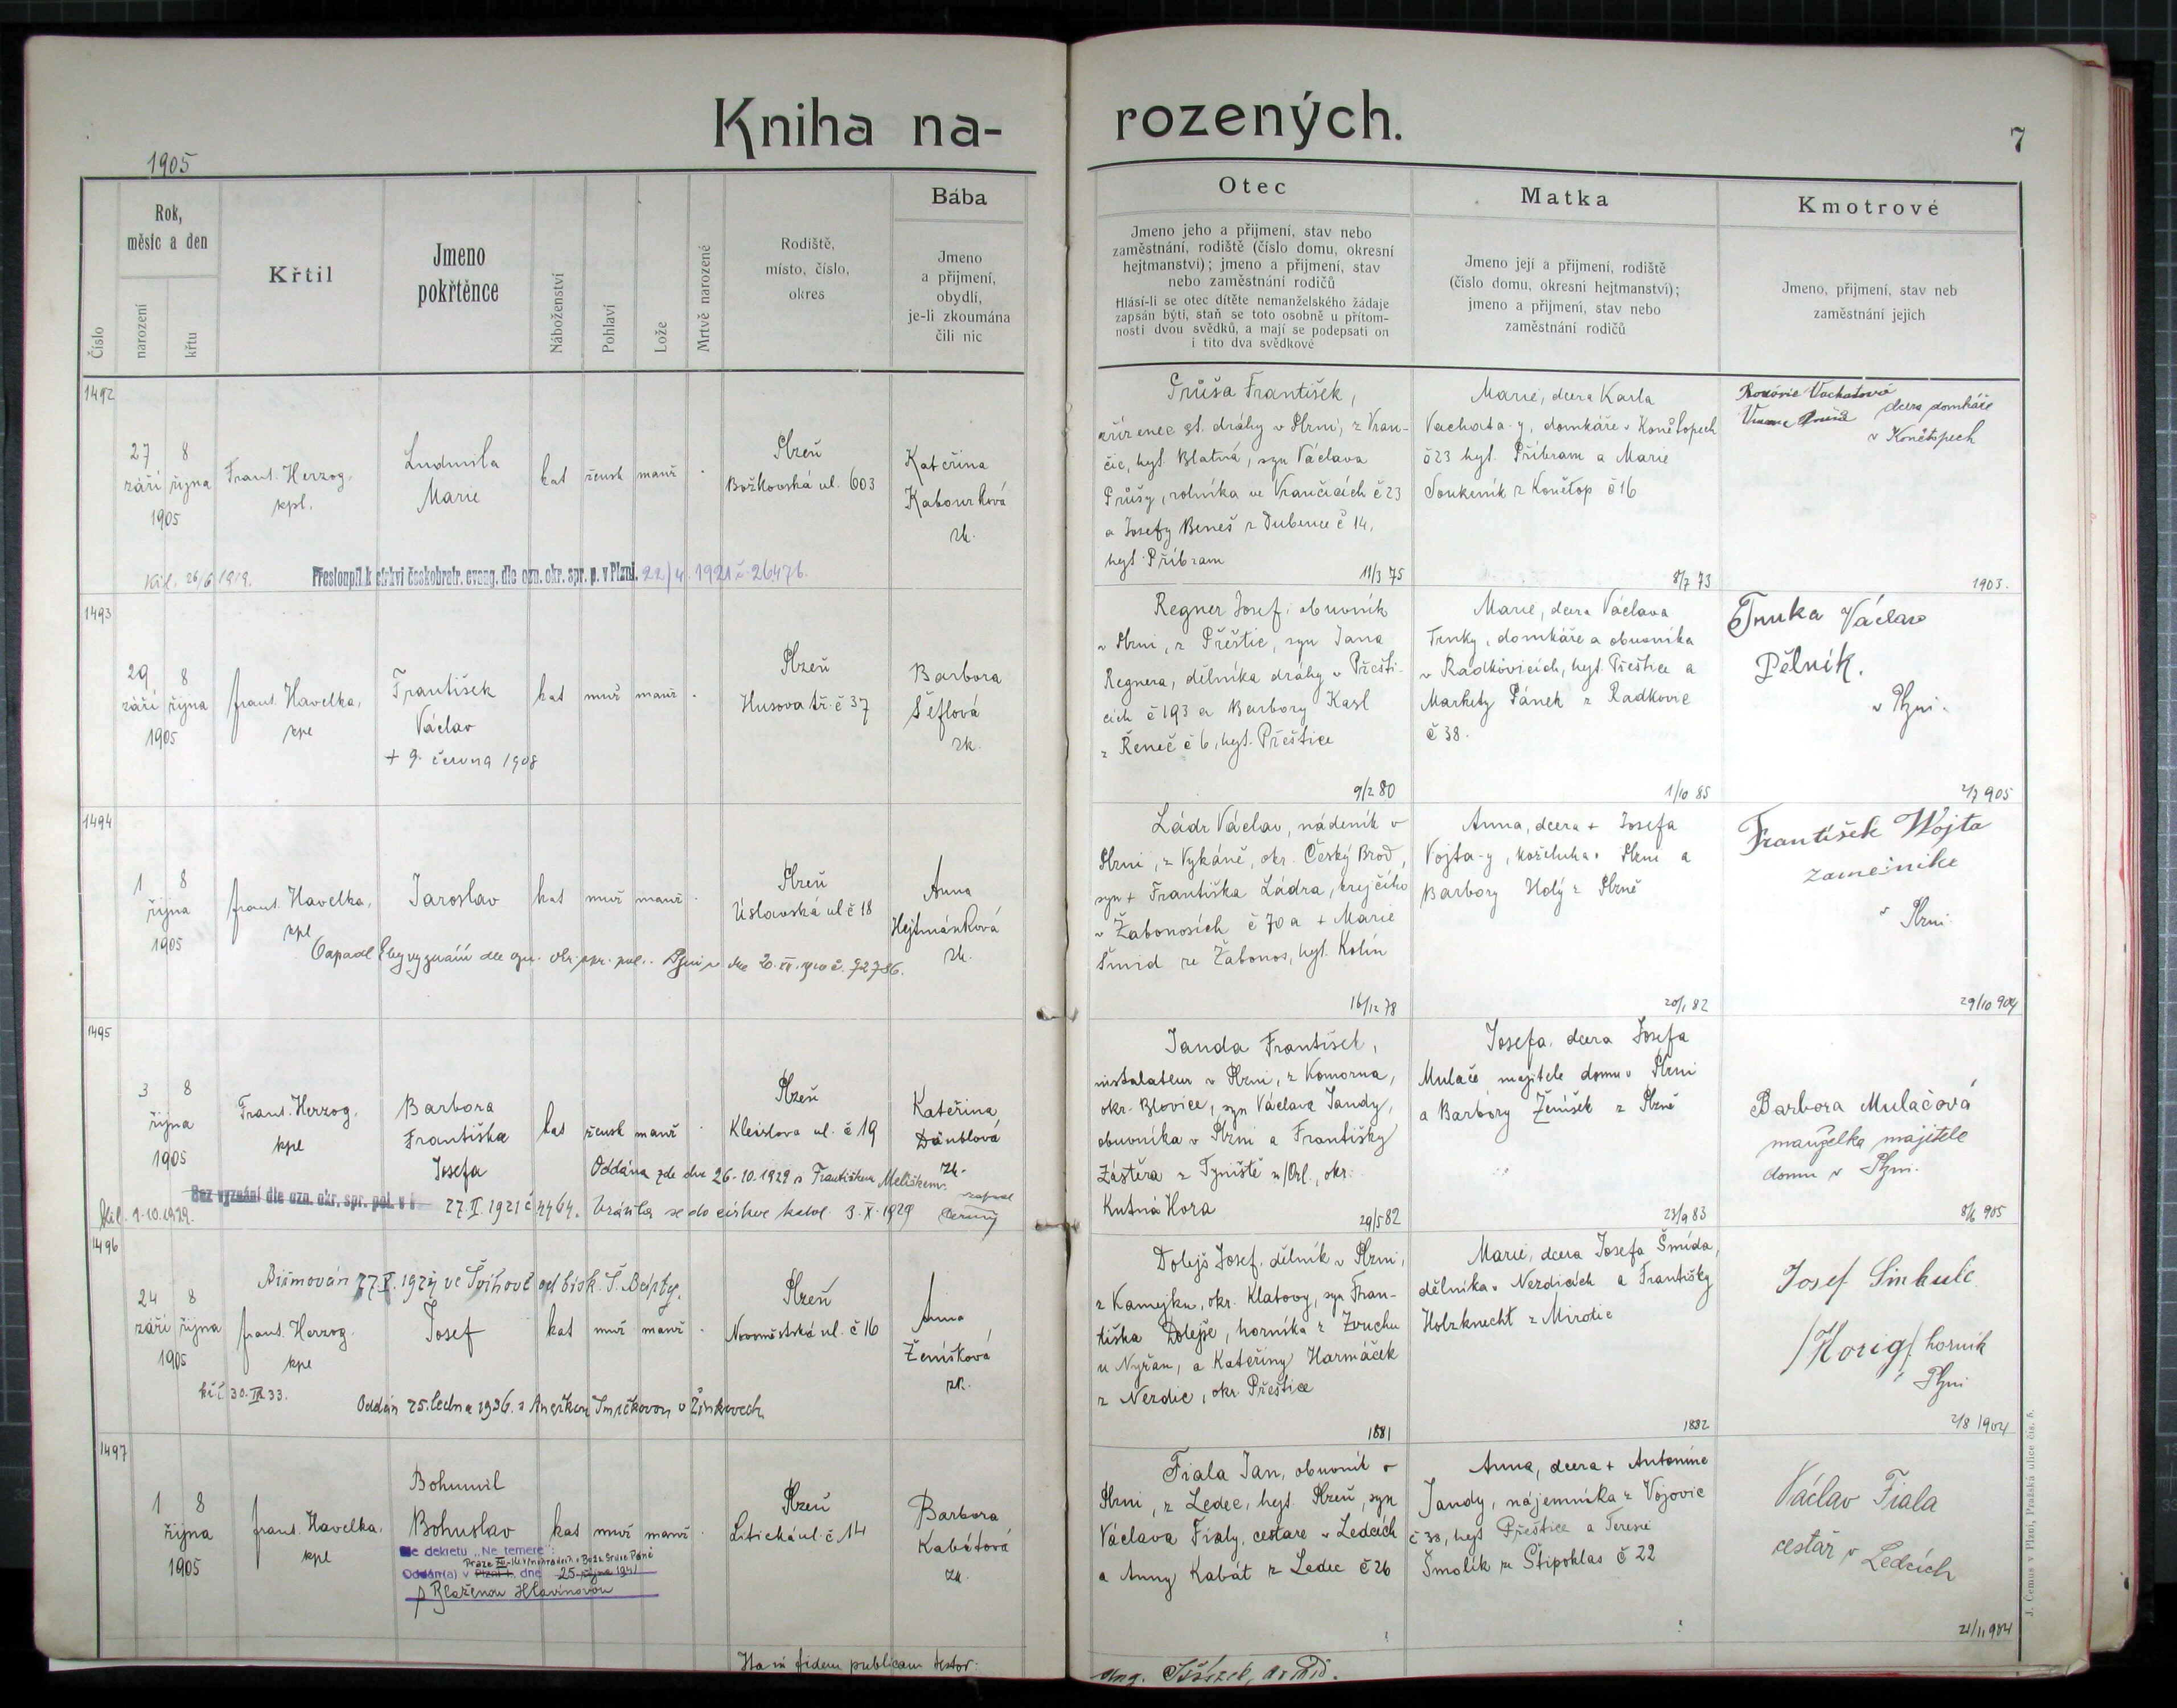 Kniha na-
rozených.
7
1905
Číslo
Rok,
měsíc a den
narození
křtu
Křtil
Jmeno
pokřtěnce
Náboženství
Pohlaví
Lože
Mrtvě narozené
Rodiště,
místo, číslo,
okres
Bába
Jmeno
a přijmení,
obydlí,
je-li zkoumána
čili nic
Otec
Jmeno jeho a přijmení, stav nebo
zaměstnání, rodiště (číslo domu, okresní
hejtmanství); jmeno a přijmení, stav
nebo zaměstnání rodičů
Hlásí-li se otec dítěte nemanželského žádaje
zapsán býti, staň se toto osobně u přítom-
nosti dvou svědků, a mají se podepsati on
i tito dva svědkové
Matka
Jmeno její a přijmení, rodiště
(číslo domu, okresní hejtmanství);
jmeno a přijmení, stav nebo
zaměstnání rodičů
Kmotrové
Jmeno, přijmení, stav neb
zaměstnání jejich
1492
27 8
září října
1905
Frant. Herzog,
kpl.
Ludmila
Marie
kat žensk manž
Plzeň
Božkovská ul. 603
Kateřina
Kabourková
zk.
Průša František,
zřízenec st. dráhy v Plzni, z Vran-
čic, hejt. Blatná, syn Václava
Průšy, rolníka ve Vrančicích č 23
a Josefy Beneš z Dubence č 14,
hejt. Příbram
11/3 75
Marie, dcera Karla
Vachata-y, domkáře v Konětopech
č 23 hejt. Příbram a Marie
Soukeník z Konětop č 16
8/7 73
Vachatová
dcera domkáře
v Konětopech
1903.
Křl. 26/6 1919.
Přestoupil k církvi českobratr. evang. dle ozn. okr. spr. p. v Plzni. 22/4. 1921 č. 26476.
1493
29 8
září října
1905
frant. Havelka,
kpl
František
Václav
+ 9. června 1908
kat muž manž
Plzeň
Husova tř. č 37
Barbora
Šéflová
zk.
Regner Josef, obuvník
v Plzni, z Přeštic, syn Jana
Regnera, dělníka dráhy v Přešti-
cích č 193 a Barbory Kasl
z Řeneč č 6, hejt. Přeštice
9/2 80
Marie, dcera Václava
Trnky, domkáře a obuvníka
v Radkovicích, hejt. Přeštice a
Markéty Pánek z Radkovic
č 38.
1/10 85
Trnka Václav
Dělník.
v Plzni.
2/7 905
1494
1 8
října
1905
frant. Havelka,
kpl
Jaroslav
kat muž manž
Plzeň
Úslavská ul č 18
Anna
Hejtmánková
zk.
Ládr Václav, nádeník v
Plzni, z Vykáně, okr. Český Brod,
syn + Františka Ládra, krejčího
v Žabonosích č 70 a + Marie
Šmid ze Žabonos, hejt. Kolín
16/12 78
Anna, dcera + Josefa
Vojta-y, koželuha v Plzni a
Barbory Holý z Plzně
20/1 82
František Wojta
v Plzni
29/10 904
Odpadl bez vyznání dle ozn. okr. spr. pol. v Plzni ze dne 20. XII. 1920 č. 72786.
1495
3 8
října
1905
Frant. Herzog,
kpl
Barbora
Františka
Josefa
kat žensk manž
Plzeň
Kleislova ul. č 19
Kateřina
Dänblová
zk.
Oddána zde dne 26.10.1929 s Františkem Melíškem.
Bez vyznání dle ozn. okr. spr. pol. v P 27. II. 1921 č 4464. Vrátila se do církve katol. 3. X. 1929
Křl. 1.10.1929.
Černý
Janda František,
instalateur v Plzni, z Komorna,
okr. Blovice, syn Václava Jandy,
obuvníka v Plzni a Františky
Zástěra z Týniště n/Orl., okr.
Kutná Hora
29/5 82
Josefa, dcera Josefa
Mulače majitele domu v Plzni
a Barbory Ženíšek z Plzně
23/9 83
Barbora Mulačová
manželka majitele
domu v Plzni.
8/6 905
1496
Biřmován 27.X. 1929 ve Švihově od bisk. Š. Bárty.
24 8
září října
1905
frant. Herzog,
kpl
Josef
kat muž manž
Plzeň
Novoměstská ul. č 16
Anna
Ženíšková
zk.
křl 30. IX 33.
Oddán 25. ledna 1936. s Anežkou Smrčkovou v Žinkovech
Dolejš Josef, dělník v Plzni,
z Kamejku, okr. Klatovy, syn Fran-
tiška Dolejše, horníka z Zbuchu
u Nyřan, a Kateřiny Harmáček
z Nezdic, okr. Přeštice
1881
Marie, dcera Josefa Šmída,
dělníka v Nezdicích a Františky
Holzknecht z Mirotic
1882
Josef
/Korig/ horník
v Plzni
2/8 1904
1497
1 8
října
1905
frant. Havelka,
kpl
Bohumil
Bohuslav
kat muž manž
Plzeň
Litická ul. č 14
Barbora
Kabátová
zk.
Dle dekretu „Ne temere":
Praze XII - Kr. Vinohradech v Božsk. Srdce Páně
Oddán(a) v Plzni I., dne 25. října 1941
s Blaženou Hlavínovou
Fiala Jan, obuvník v
Plzni, z Ledec, hejt. Plzeň, syn
Václava Fialy, cestáře v Ledcích
a Anny Kabát z Ledec č 26
Anna, dcera + Antonína
Jandy, nájemníka z Vojovic
č 38, hejt Přeštice a Terezie
Šmolík ze Štipoklas č 22
Václav Fiala
cestář v Ledcích
21/11 904
Ita in fidem publicam testor:
J. Černus v Plzni, Pražská ulice čís. 5.